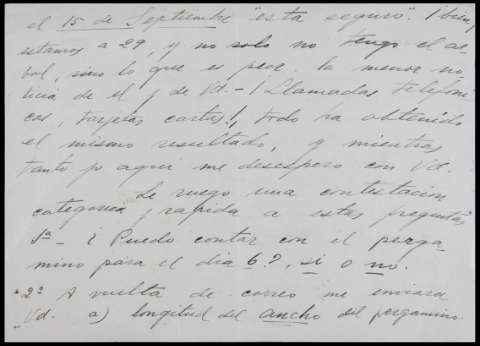 el 15 de Septiembre "esta seguro". ¡bien,
estamos a 29, y no solo no tengo el ar-
bol, sino lo que es peor, la menor no-
ticia de el y de Vd. - ¡Llamadas telefoni-
cas, tarjetas cartas!, todo ha obtenido
el mismo resultado, y mientras
tanto yo aqui me desespero con Vd.
Le ruego una contestación
categorica y rapida a estas preguntas
1ª - ¿Puedo contar con el perga-
mino para el dia 6?, si o no.
2ª A vuelta de correo me enviará
Vd. a) longitud del ancho del pergamino.